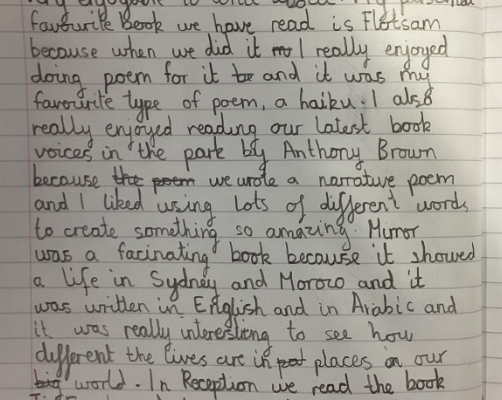 enjoyable to
favourite book we have read is Flotsam
because when we did it I really enjoyed
doing poem for it and it was my
favourite type of poem, a haiku. I also
really enjoyed reading our latest book
voices in the park by Anthony Brown
because the poem we wrote a narrative poem
and I liked using lots of different words
to create something so amazing. Mirror
was a facinating book because it showed
a life in Sydney and Moroco and it
was written in English and in Arabic and
it was really interesting to see how
different the lives are in places in our
big world. In Reception we read the book